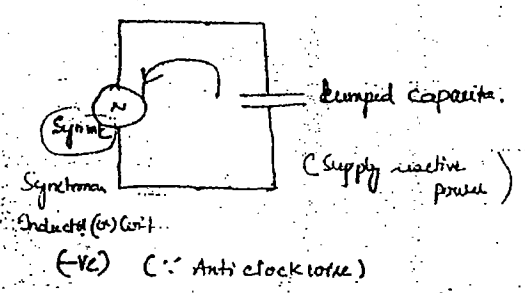 ~
lumped capacita.
(Supply reactive
power)
Synchronou
Inductor (or)
(-Ve) (∵ Anti clockwise)